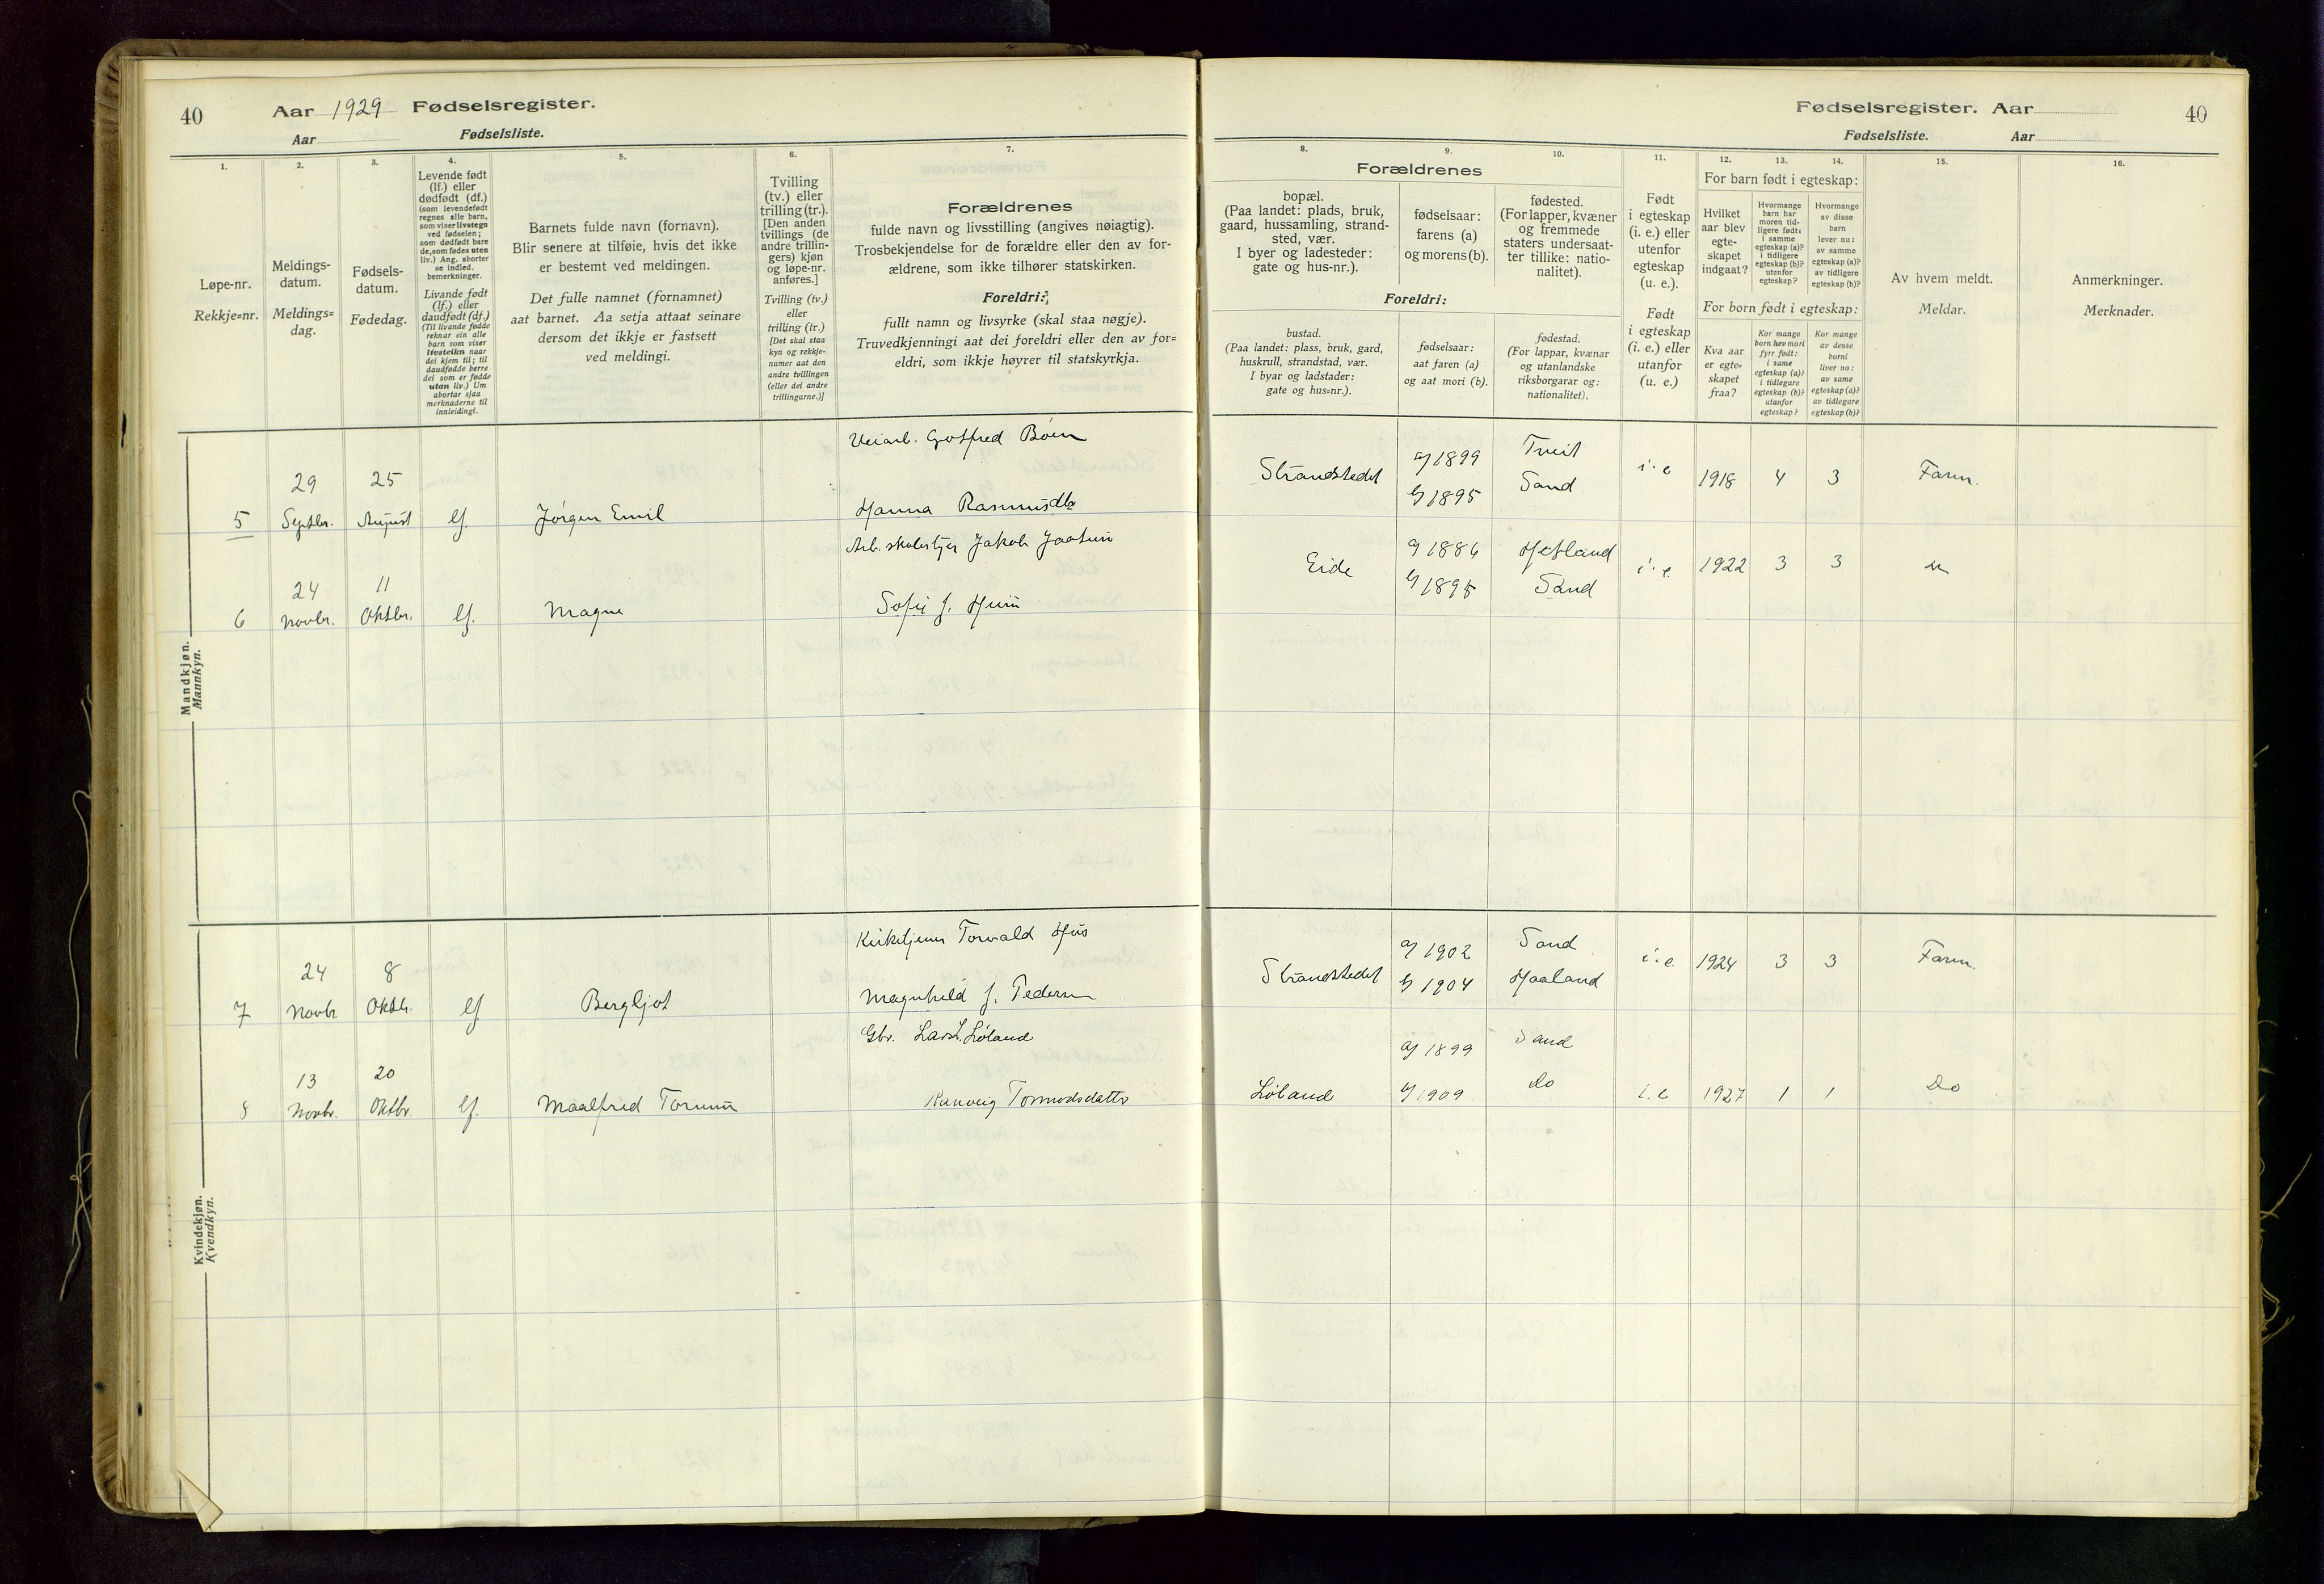 40 Aar 1929 Fødselsregister.
Aar Fødselsliste.
Fødselsregister. Aar 40
Fødselsliste. Aar
1.
Løpe-nr.
Rekkje=nr.
2.
Meldings-
datum.
Meldings=
dag.
3.
Fødsels-
datum.
Fødedag.
4.
Levende født
(lf.) eller
dødfødt (df.)
(som levendefødt
regnes alle barn,
som viser livstegn
ved fødselen;
som dødfødt bare
de, som fødes uten
liv.) Ang. aborter
se indled.
bemerkninger.
Livande født
(lf.) eller
daudfødt (df.)
(Til livande fødde
reknar ein alle
barn som viser
livsteikn naar
dei kjem til; til
daudfødde berre
dei som er fødde
utan liv.) Um
abortar sjaa
merknaderne til
innleidingi.
5.
Barnets fulde navn (fornavn).
Blir senere at tilføie, hvis det ikke
er bestemt ved meldingen.
Det fulle namnet (fornamnet)
aat barnet. Aa setja attaat seinare
dersom det ikkje er fastsett
ved meldingi.
6.
Tvilling
(tv.) eller
trilling (tr.).
[Den anden
tvillings (de
andre trillin-
gers) kjøn
og løpe-nr.
anføres.]
Tvilling (tv.)
eller
trilling (tr.)
[Det skal staa
kyn og rekkje-
numer aat den
andre tvillingen
(eller dei andre
trillingarne.)]
7.
Forældrenes
fulde navn og livsstilling (angives nøiagtig).
Trosbekjendelse for de forældre eller den av for-
ældrene, som ikke tilhører statskirken.
Foreldri:
fullt namn og livsyrke (skal staa nøgje).
Truvedkjenningi aat dei foreldri eller den av for=
eldri, som ikkje høyrer til statskyrkja.
Forældrenes
8.
bopæl.
(Paa landet: plads, bruk,
gaard, hussamling, strand-
sted, vær.
I byer og ladesteder:
gate og hus-nr.).
Foreldri:
bustad.
(Paa landet: plass, bruk, gard,
huskrull, strandstad, vær.
I byar og ladstader:
gate og hus=nr.).
9.
fødselsaar:
farens (a)
og morens (b).
fødselsaar:
aat faren (a)
og aat mori (b).
10.
fødested.
(For lapper, kvæner
og fremmede
staters undersaat-
ter tillike: natio-
nalitet).
fødestad.
(For lappar, kvænar
og utanlandske
riksborgarar og:
nationalitet).
11.
Født
i egteskap
(i. e.) eller
utenfor
egteskap
(u. e.).
Født
i egteskap
(i. e.) eller
utanfor
(u. e.)
For barn født i egteskap:
12.
Hvilket
aar blev
egte-
skapet
indgaat?
13.
Hvormange
barn har
moren tid-
ligere født:
i samme
egteskap (a)?
i tidligere
egteskap (b)?
utenfor
egteskap?
14.
Hvormange
av disse
barn
lever nu:
av samme
egteskap (a)?
av tidligere
egteskap (b)?
For born født i egteskap:
Kva aar
er egte=
skapet
fraa?
Kor mange
born hev mori
fyrr født:
i same
egteskap (a)?
i tidlegare
egteskap (b)?
utanfor
egteskap?
Kor mange
av desse
borni
liver no:
av same
egteskap (a)?
av tidlegare
egteskap (b)?
15.
Av hvem meldt.
Meldar.
16.
Anmerkninger.
Merknader.
Mandkjøn.
Mannkyn.
Veiarb. Gotfred Bøen
5 29 Septbr. 25 August lf. Jørgen Emil Hanna Rasmusdtr Strandstedet a/ 1899 b/ 1895 Tveit Sand i. e 1918 4 3 Faren.
Jakob
6 24 Novbr. 11 Oktbr. lf. Magne Sofie J. Eide a/ 1886 b/ 1895 Sand i. e. 1922 3 3
Kvindekjøn.
Kvendkyn.
Kirketjener Torvald Hus
7 24 Novbr 8 Oktbr. lf Bergljot Magnhild J. Pedersen Strandstedet a/ 1902 b/ 1904 Sand Haaland i. e. 1924 3 3 Faren.
Gbr. Lars L. Løland
8 13 Novbr. 20 Oktbr. lf. Maalfred Torunn Ranveig Tormodsdatter Løland a/ 1899 b/ 1909 Sand Do i. e 1927 1 1 Do